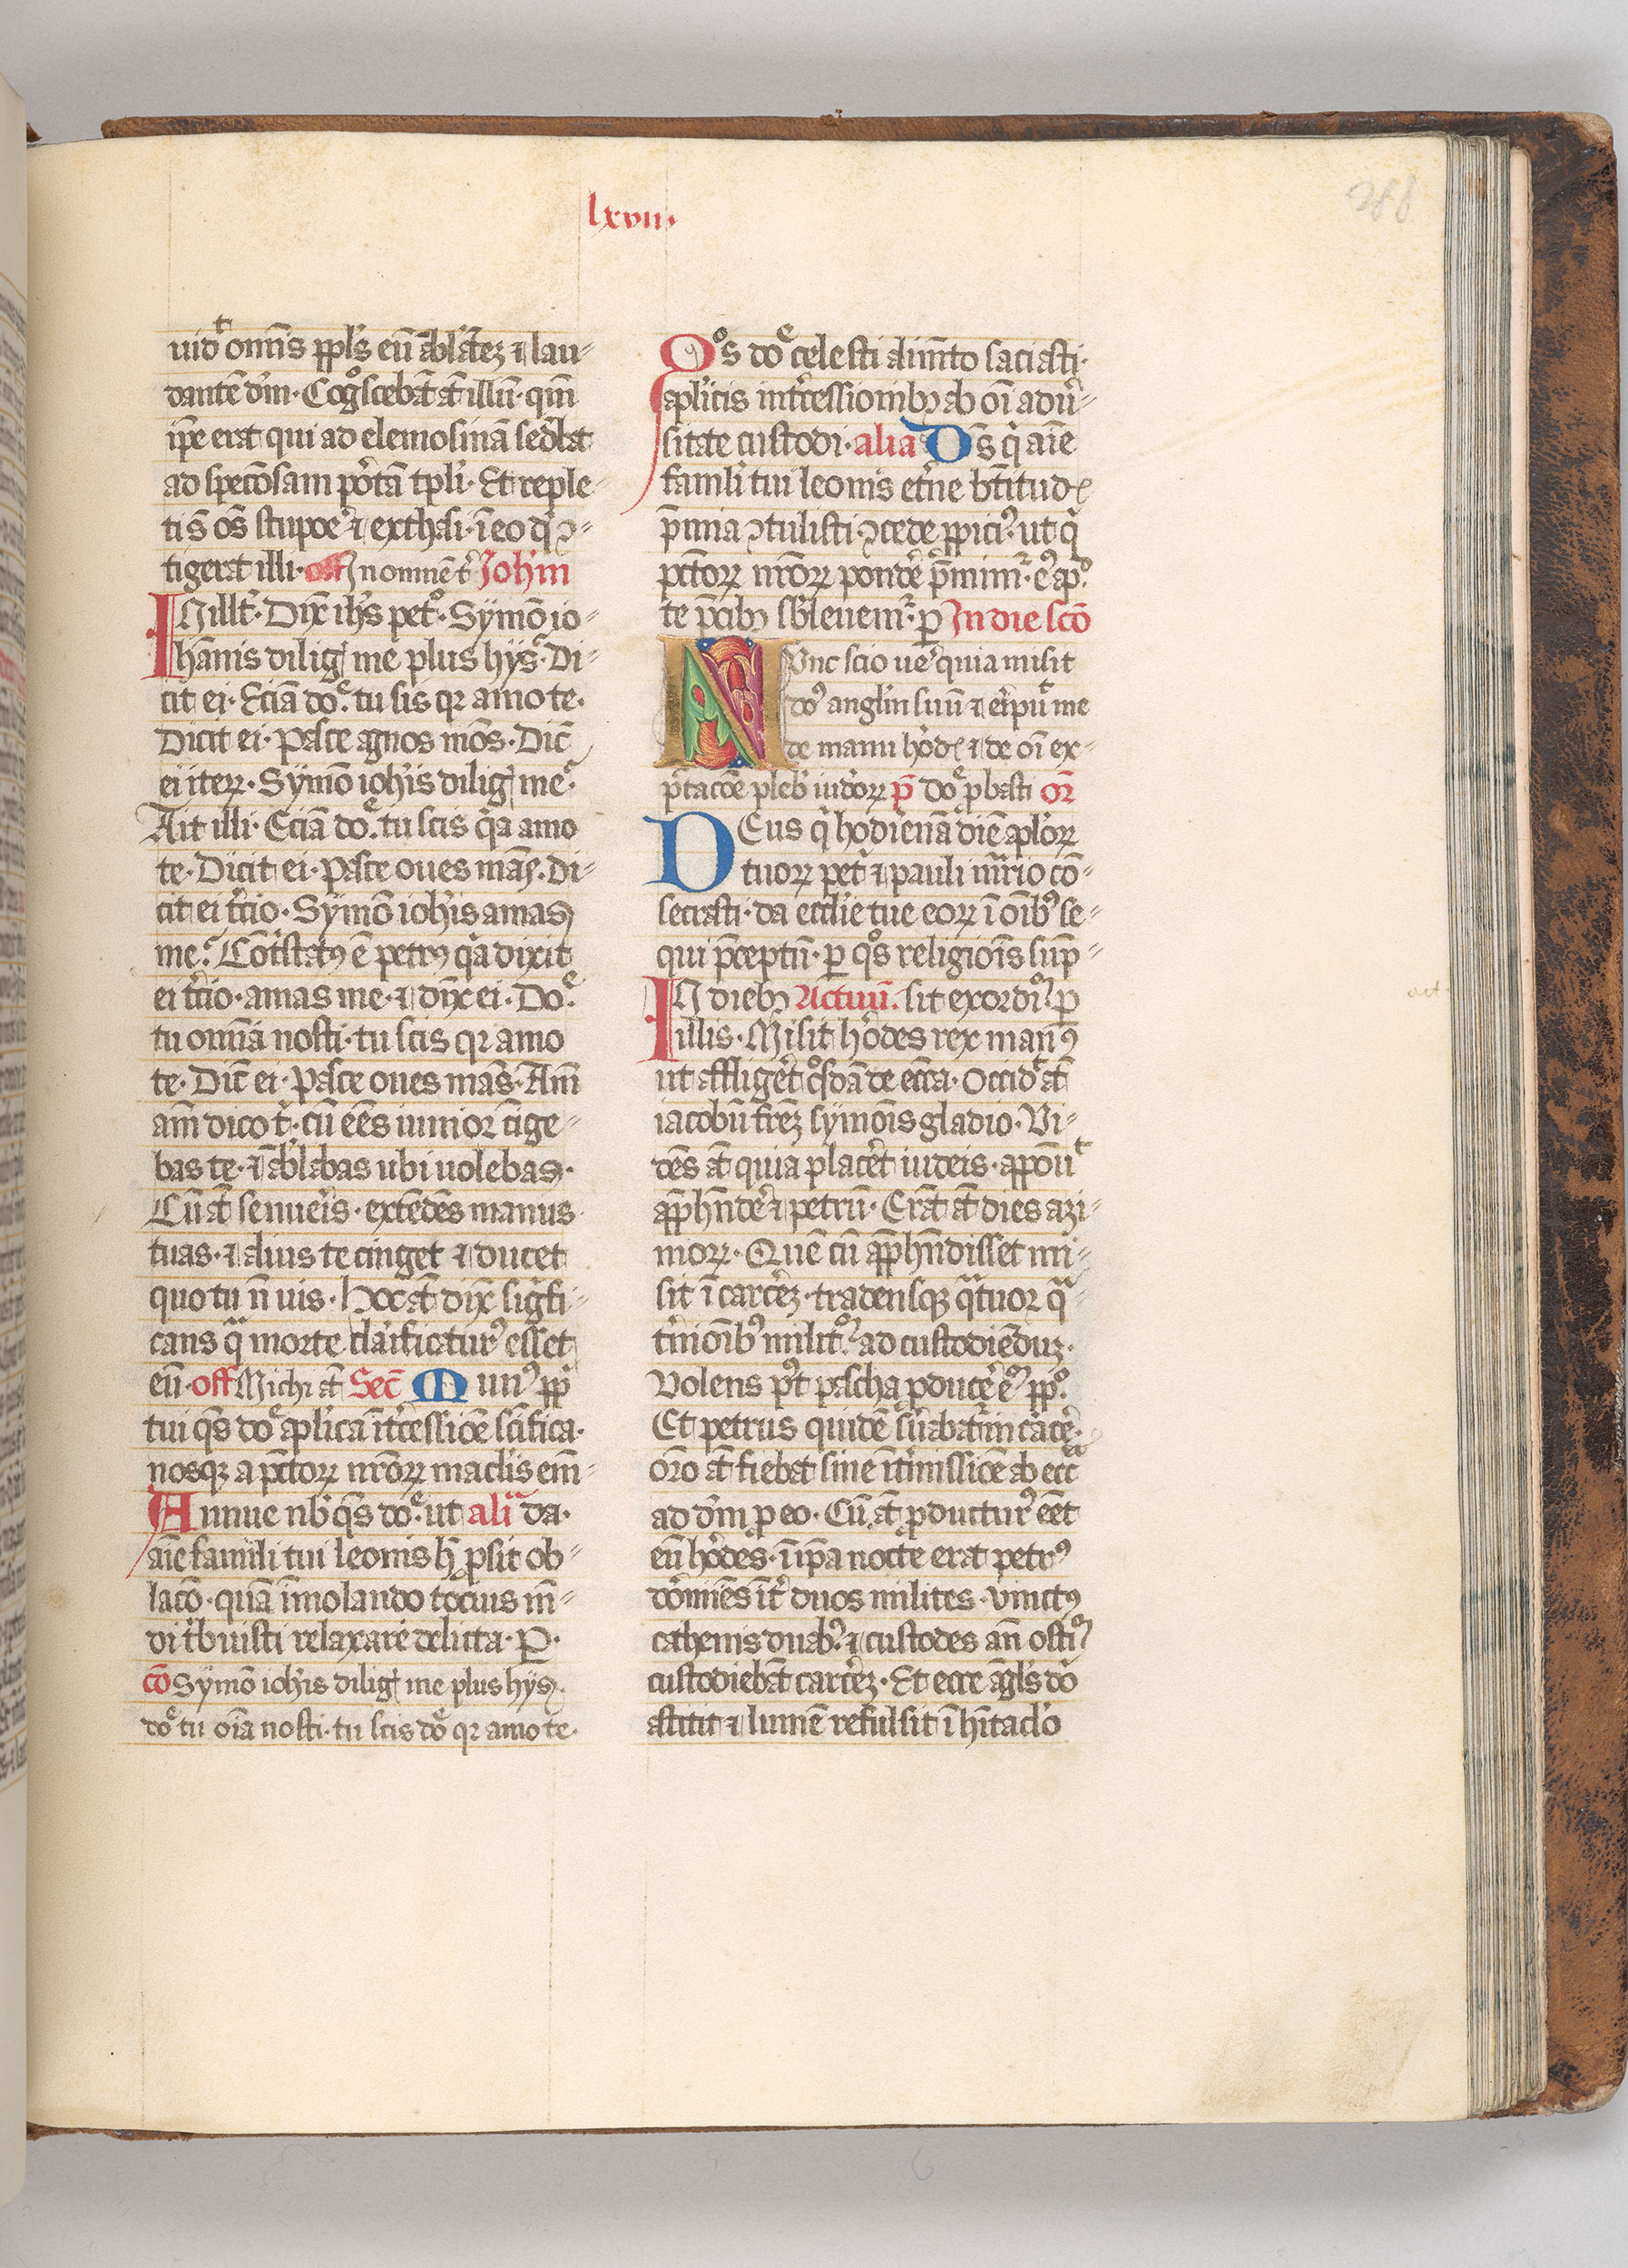 lxviii
288
uidt omīs ppl's eū ābl'ātez ⁊ lau-
dantē dm̄. Cog̊scebāt āt illū. qm̄
ip̄e erat qui ad elemosinā sed'bat
ad specōsam pōrtā tpli. Et reple-
ti sʼ os̄ stupoe' ⁊ exthasi. ī eo q̄ ↄ-
tigerat illi. off In omnē t' Joh'm
IN ill' t'. Dix̄ ih's pet°. Symō io-
hānis dilig' me plus hys. Di-
cit ei. Eciā doe. tu sis qr amo te.
Dicit ei. Pasce agnos mōs. Dic̄
ei iteꝝ. Symō ioh'is dilig' me.
Ait illi. Eciā doe. tu scis q'a amo
te. Dicit ei. Pasce oues māS. di-
cit ei t'cio. Symō ioh'is amas
me. Cōt'stat9 ē petr9 q'a dixit
ei t'cio. amas me. ⁊ dix̄ ei. Doe.
tu omīa nosti. tu scis qr amo
te. Dic̄ ei. Pasce oues mās. Am̄
am̄ dico t'. cū ēēs iunior c̄ige-
bas te. ⁊ ābl'abas ubi uolebas.
Cū āt senueis'. extēdēs manus
tuas. ⁊ alius te cinget ⁊ ducet
quo tu n̄ uis. Hoc āt dix̄ sig'fi-
cans q̄ morte cla'ificatur9 esset
eū. off Michi āt Sec̄ Mun9 pp̄l
tui q̄s doe apl'ica īt'cessiōe sc̄ifica.
nosqꝫ a pc̄toꝝ nr̄oꝝ macl'is em̄-
Annue nb' q̄s doe. ut alia da.
aīe famili tui leonis h' ꝓsit ob-
lacō. quā īmolando tocius m̄-
di t'buisti relaxare delicta. P.
cō Symō ioh'is dilig' me plus hys.
doe tu oīa nosti. tu scis doe qr amo te.
Qos doe celesti alimēto saciasti.
apl'icis int'cessionibꝫ ab oī adu'-
sitate custodi. alia Ds̄ q' aīe
famli' tui leonis et'ne bt̄itud'
p̄mia ↄtulisti. ↄcede ppici9. ut q'
pc̄toꝝ nr̄oꝝ pond'e p̄mim'. e9 ap°
te p̄cibꝫ sb'leuem'. ꝑ In die scō
NVnc scio ue' quia misit
do9 angl'm suū ⁊ e'ipuit me
de manu hod' ⁊ de oī ex-
p'tacōe pleb' iudoꝝ p̄ doe ꝓbasti or̄
DEus q' hodiernā diē apl'oꝝ
tuoꝝ pet' ⁊ pauli m̄rio cō-
secrasti. da eccl'ie tue eoꝝ ī oīb9 se-
qui p̄ceptū. ꝑ q°s religiois̄ sup̄-
IN diebꝫ Actuū. sit exordi° ꝑ
illis. Misit h'odes rex man9
ut afflig'et q°sdā de ecc̄a. Occid't āt
iacobū fr̄ez symōis gladio. Vi-
dēs āt quia plac'et iudeis. apposūt
app'hn̄d'e ⁊ petrū. Erāt āt dies azi-
moꝝ. Quē cū app'hn̄disset mi-
sit ī carc'ez. tradensqꝫ qatuor qa-
t'nionib9 milit° ad custodiēduz.
Volens p9t pascha ꝓduc'e e9 pp°.
Et petrus quidē s'uabat' in ca'ce'.
oro āt fiebat sine int'missiōe ab ecc̄a
ad dm̄ ꝓ eo. Cū āt ꝓductur9 eēt
eū h'odes. ī ip̄a nocte erat petr9
dormiēs īt' duos milites. vinct9
cathenis duab9. ⁊ custodes an̄ osti°
custodiebāt carc'ez. Et ecce āgl's do'
astitit ⁊ lumē refulsit ī hit̄aclo'